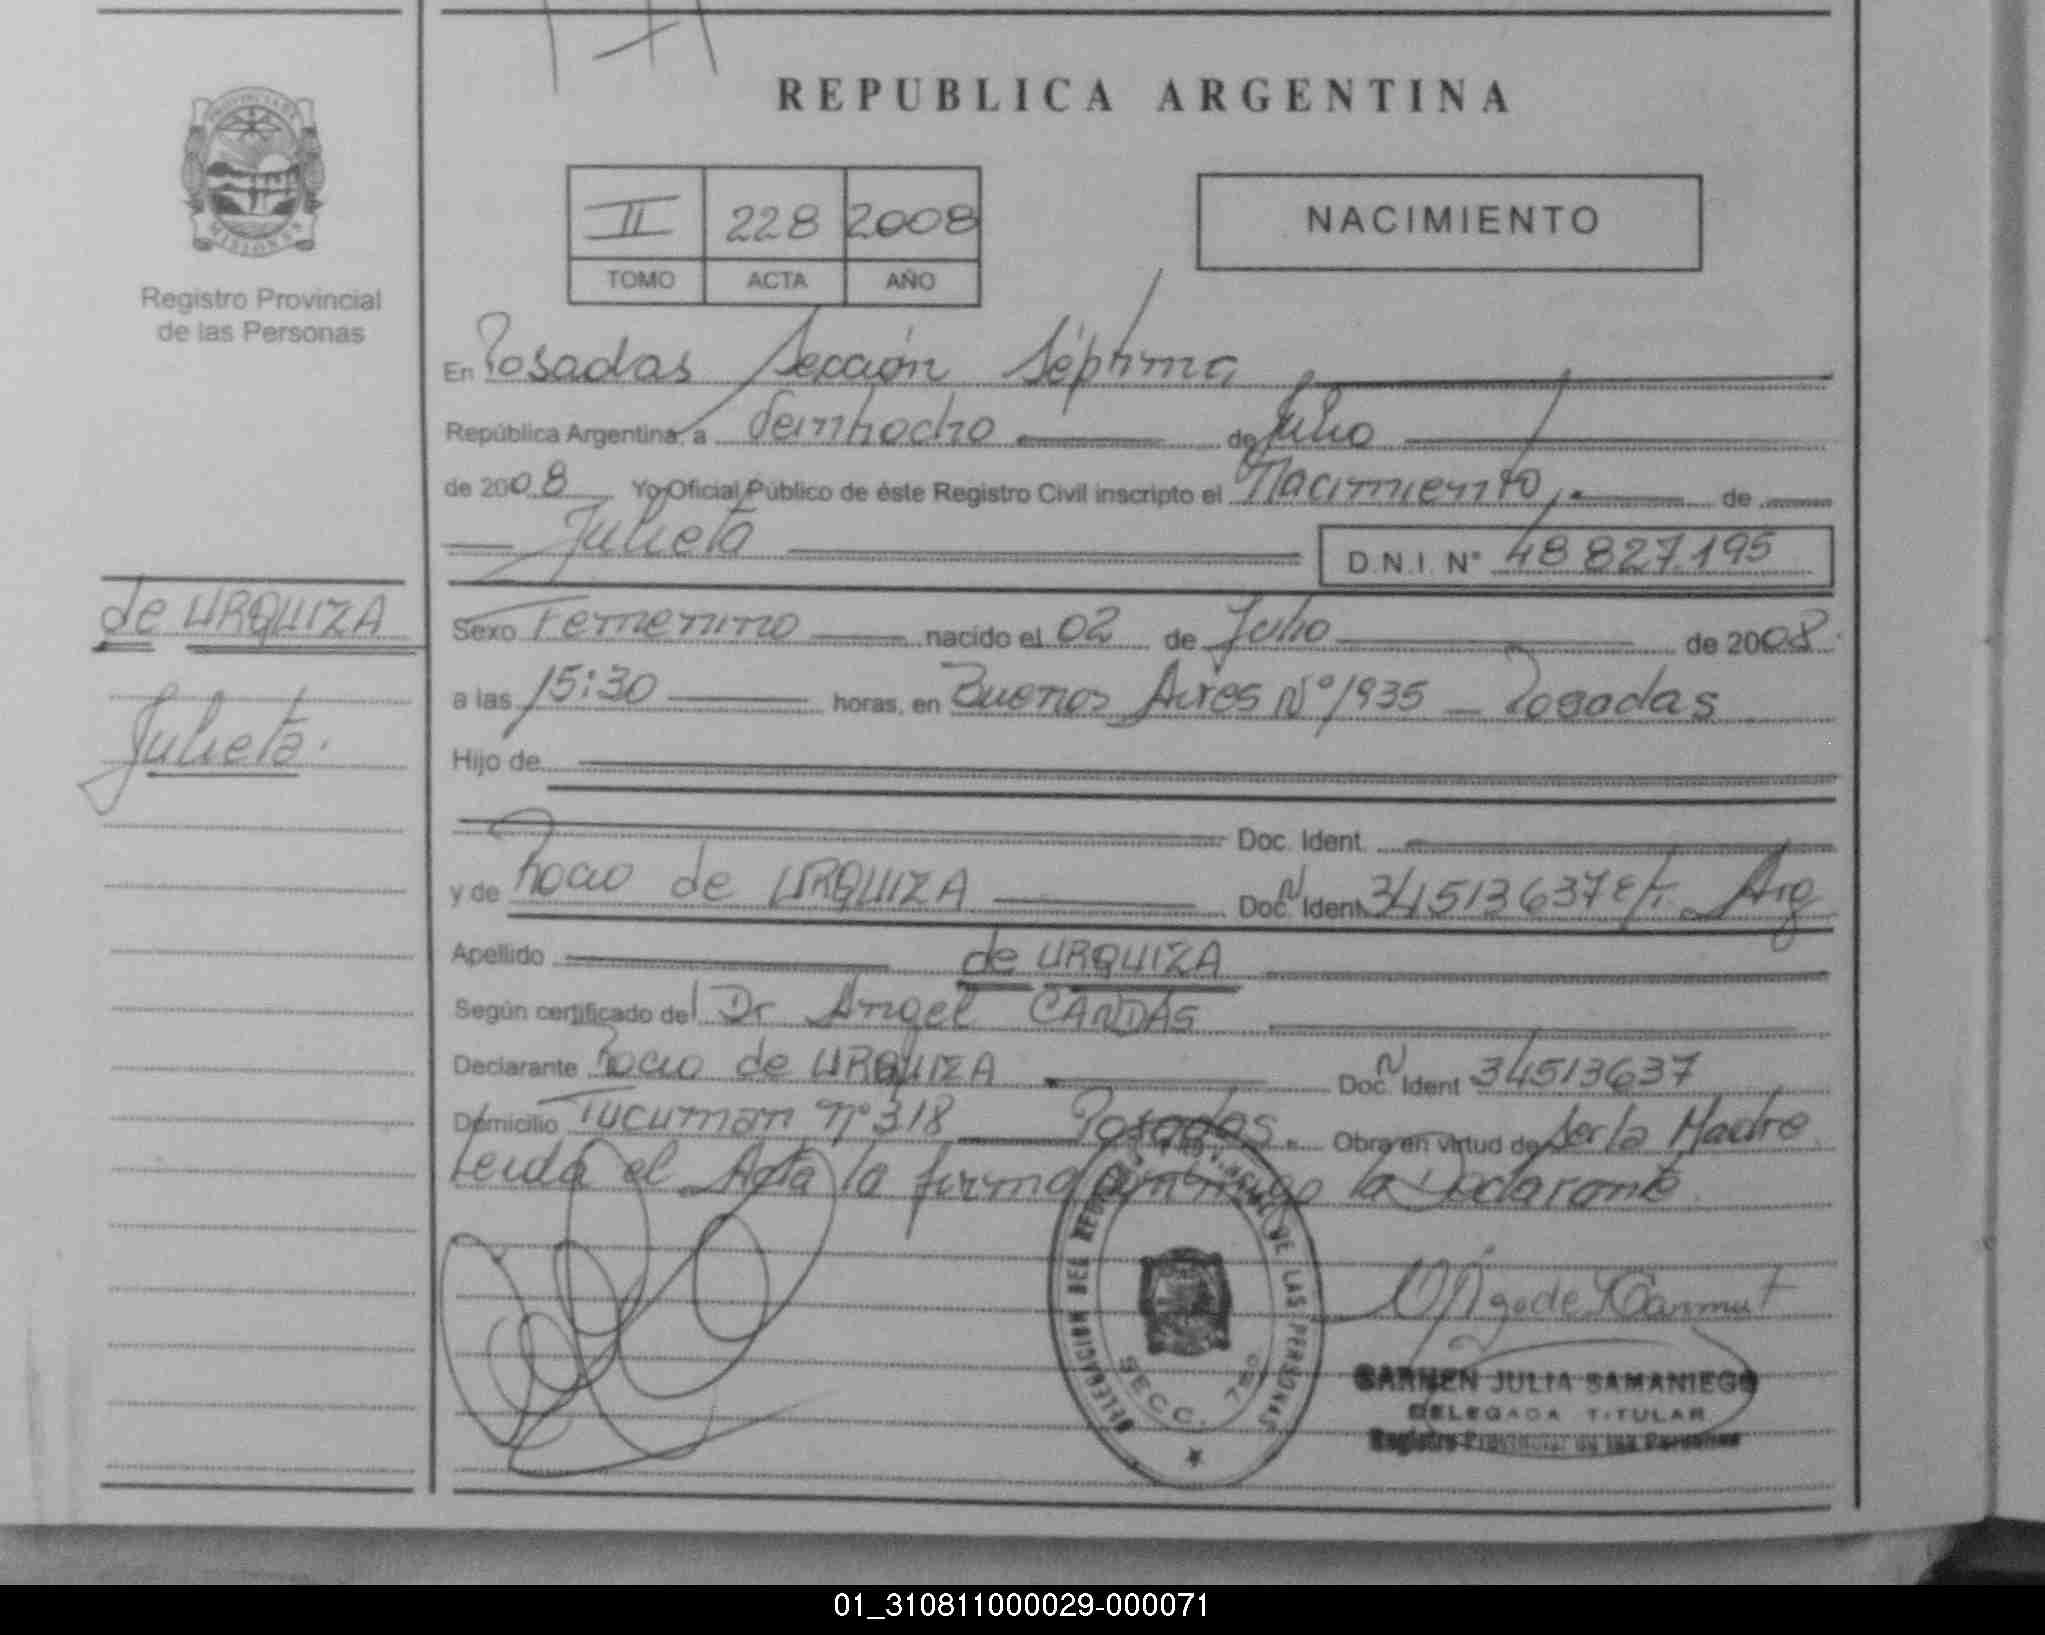 REPUBLICA ARGENTINA
PROVINCIA DE
MISIONES
Registro Provincial
de las Personas
II 228 2008
TOMO ACTA AÑO
NACIMIENTO
En Posadas Sección Séptima
República Argentina, a Veintiocho de Julio
de 2008 Yo Oficial Público de éste Registro Civil inscripto el Nacimiento de
Julieta D.N.I. N° 48 827.195
de URQUIZA
Julieta.
Sexo Femenino nacido el 02 de Julio de 2008
a las 15:30 horas, en Buenos Aires N° 1935 - Posadas
Hijo de
Doc. Ident.
y de Rocio de URQUIZA Doc. N Ident 34513637 Arg
Apellido de URQUIZA
Según certificado del Dr Angel CANDAS
Declarante Rocio de URQUIZA Doc. N Ident 34513637
Domicilio Tucuman n° 318 Posadas. Obra en virtud de Ser la Madre
Leida el Acta la firma conmigo la Declarante
DELEGACION DEL REGISTRO PROVINCIAL DE LAS PERSONAS
SECC. 7ma
CARMEN JULIA SAMANIEGO
DELEGADA TITULAR
Registro Provincial de las Personas
01_310811000029-000071